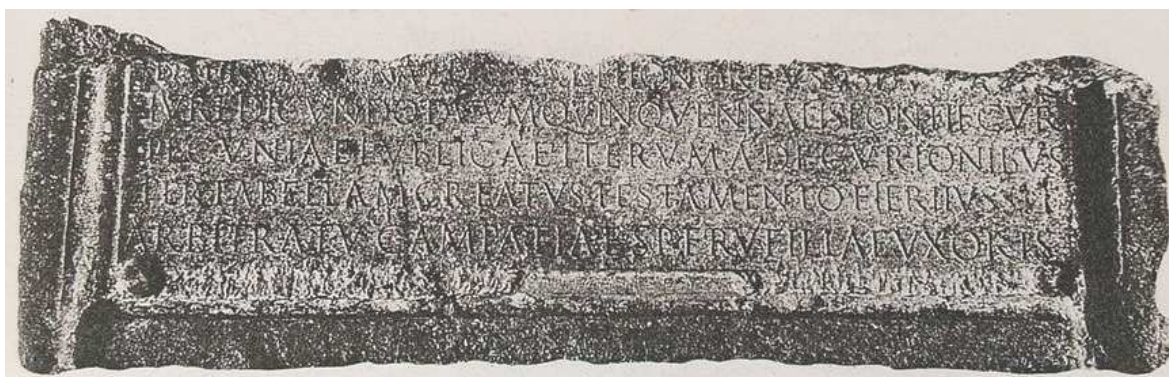 HONORIBVS
IVRE DICVNDO QVINQVENNALIS PONTIF CVR
PECVNIAE PVBLICAE ITERVM A DECVRIONIBVS
PER TABELLAM CREATVS TESTAMENTO FIERI IVSSIT
ARBITRATV CAMPATIAE VXORIS